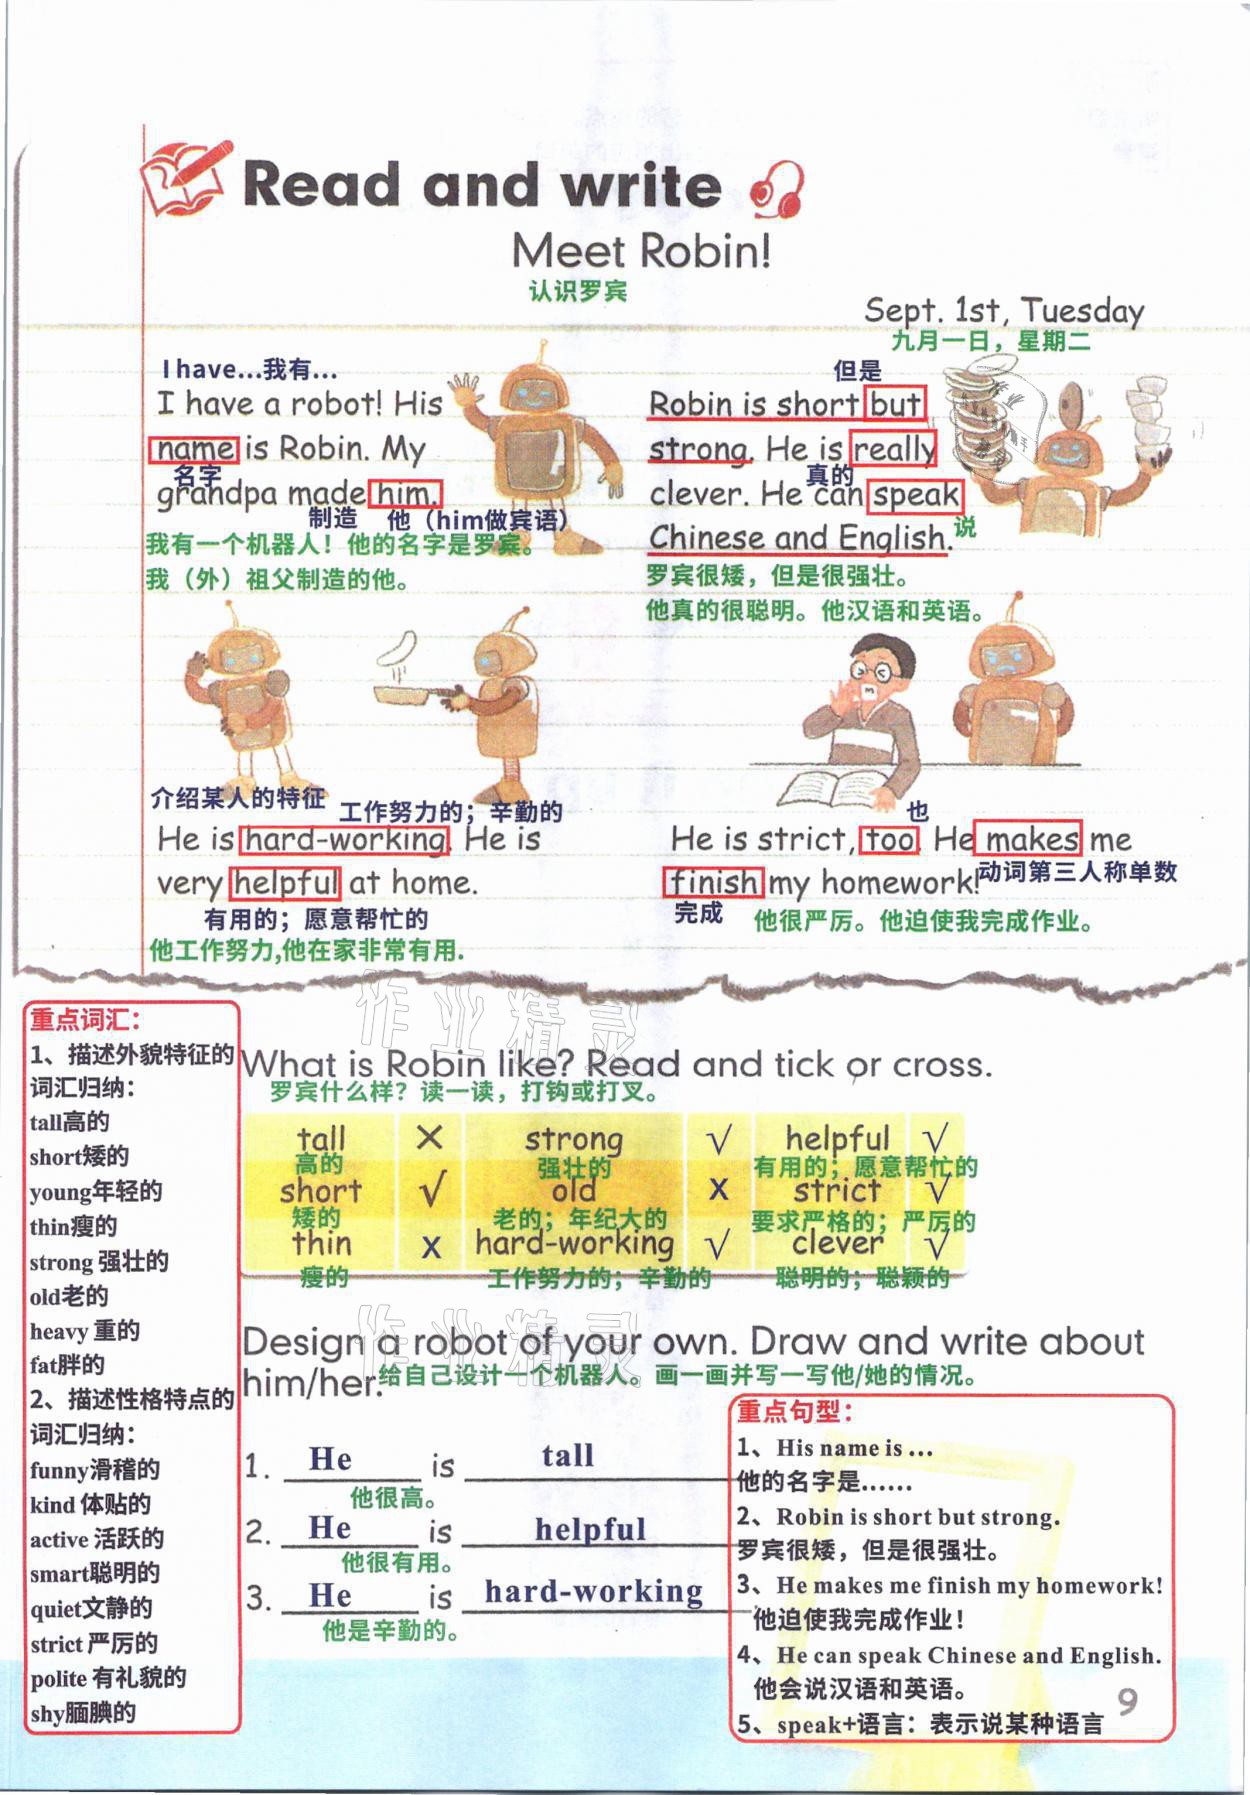 Read and write
Meet Robin!
认识罗宾
Sept. 1st, Tuesday
九月一日，星期二
I have...我有...
I have a robot! His
name is Robin. My
名字
grandpa made him.
制造 他（him做宾语）
我有一个机器人！他的名字是罗宾。
我（外）祖父制造的他。
但是
Robin is short but
strong. He is really
真的
clever. He can speak
说
Chinese and English.
罗宾很矮，但是很强壮。
他真的很聪明。他汉语和英语。
介绍某人的特征 工作努力的；辛勤的
He is hard-working. He is
very helpful at home.
有用的；愿意帮忙的
他工作努力,他在家非常有用.
也
He is strict, too. He makes me
动词第三人称单数
finish my homework!
完成 他很严厉。他迫使我完成作业。
作业精灵
重点词汇：
1、描述外貌特征的
词汇归纳：
tall高的
short矮的
young年轻的
thin瘦的
strong 强壮的
old老的
heavy 重的
fat胖的
2、描述性格特点的
词汇归纳：
funny滑稽的
kind 体贴的
active 活跃的
smart聪明的
quiet文静的
strict 严厉的
polite 有礼貌的
shy腼腆的
What is Robin like? Read and tick or cross.
罗宾什么样？读一读，打钩或打叉。
tall × strong √ helpful √
高的 强壮的 有用的；愿意帮忙的
short √ old x strict √
矮的 老的；年纪大的 要求严格的；严厉的
thin x hard-working √ clever √
瘦的 工作努力的；辛勤的 聪明的；聪颖的
作业精灵
Design a robot of your own. Draw and write about
him/her.
给自己设计一个机器人。画一画并写一写他/她的情况。
1. He is tall
他很高。
2. He is helpful
他很有用。
3. He is hard-working
他是辛勤的。
重点句型：
1、His name is ...
他的名字是......
2、Robin is short but strong.
罗宾很矮，但是很强壮。
3、He makes me finish my homework!
他迫使我完成作业！
4、He can speak Chinese and English.
他会说汉语和英语。
5、speak+语言：表示说某种语言
9